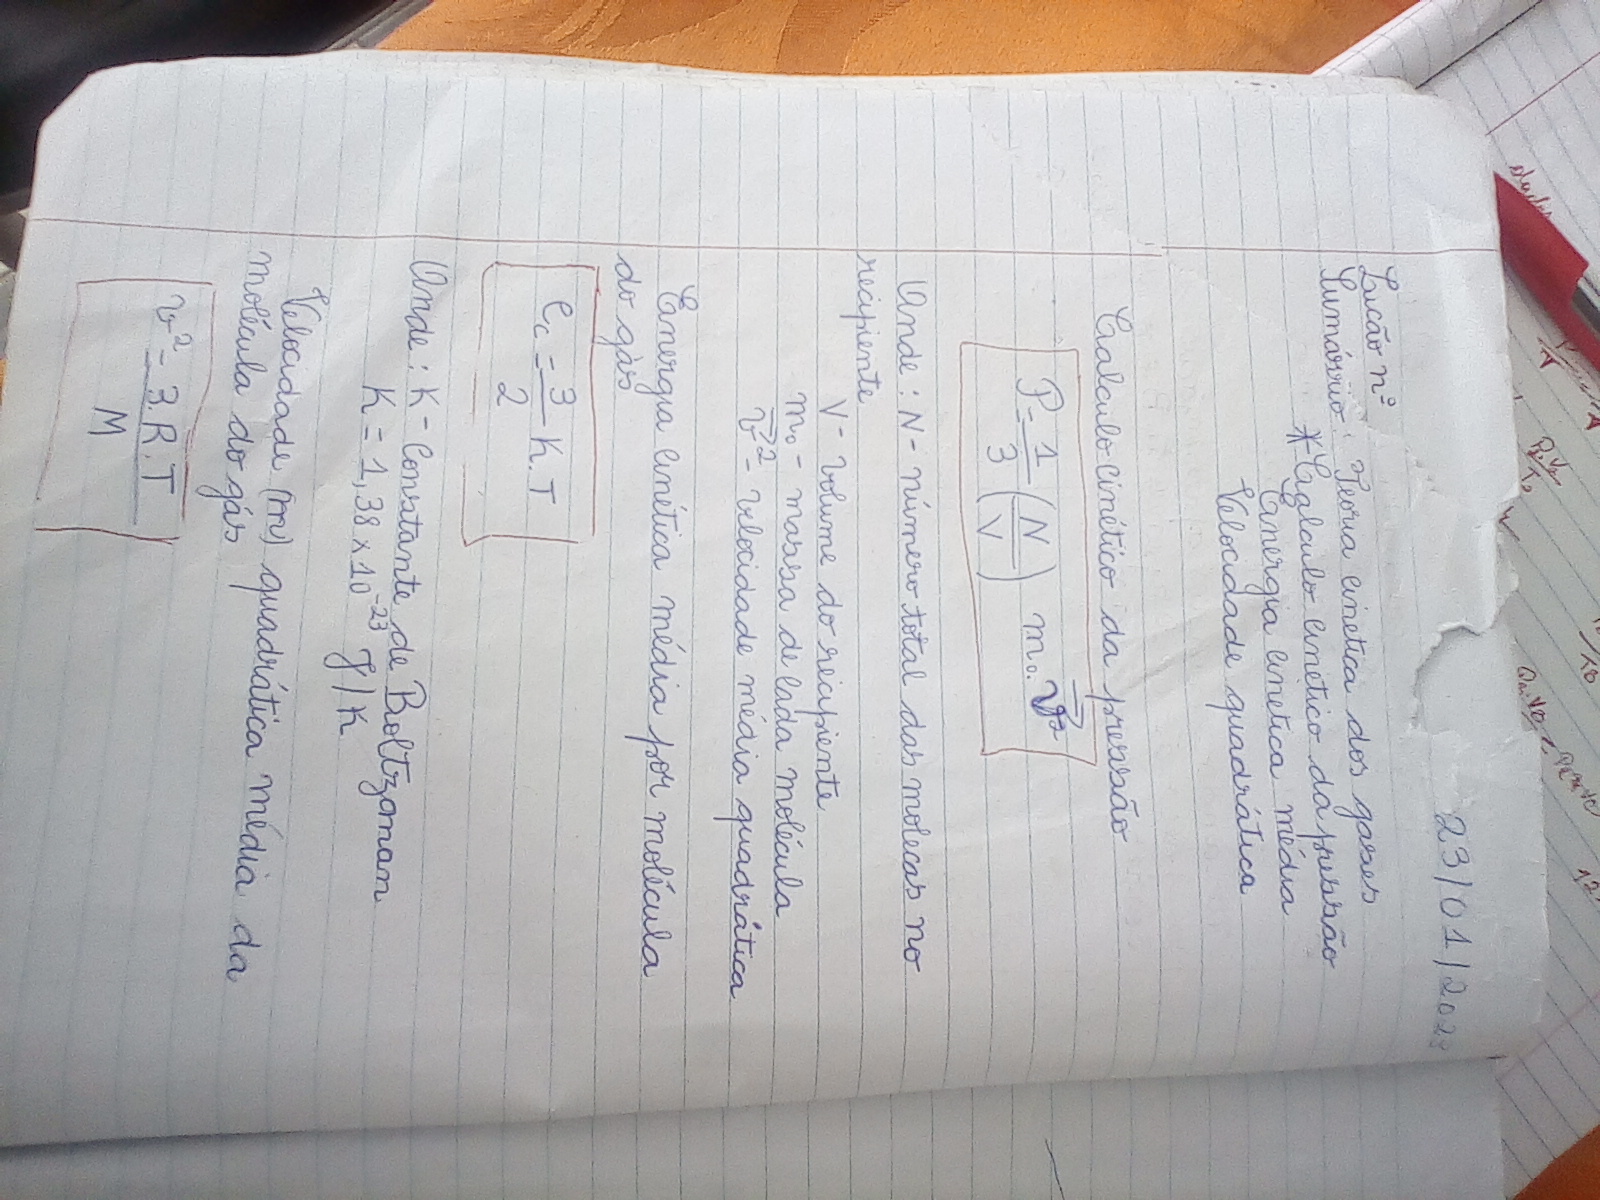 23/01/202
Lição nº
Sumário: Teoria cinetica dos gases
* Calculo cinetico da pressão
Energia cinetica média
Velocidade quadrática
Calculo cinético da pressão
P = 1/3 (N/V) m₀. v⃗²
Onde: N - número total das molecas no
recipiente
V - volume do recipiente
m₀ - massa de cada molécula
v⃗² - velocidade média quadrática
Energia cinética média por molécula
do gás
Ec = 3/2 K.T
Onde: K - Constante de Boltzamam
K = 1,38 × 10⁻²³ J/K
Velocidade (m) quadrática média da
molécula do gás
v² = 3.R.T/M
dados